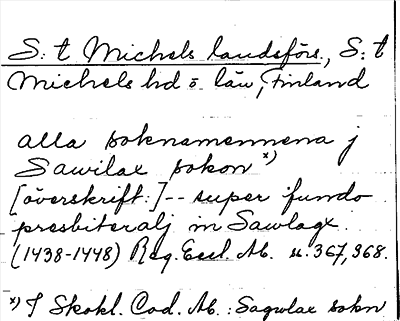 S:t Michels landsförs., S:t
Michels hd o. län, Finland
alla soknamennena j
Sawilax sokon x)
[överskrift:] -- super fundo
presbiteralj in Sawlagx.
(1438-1448) Reg. Eccl. Ab. s. 367, 368.
x) I Skokl. Cod. Ab.: Sagwlax sokn